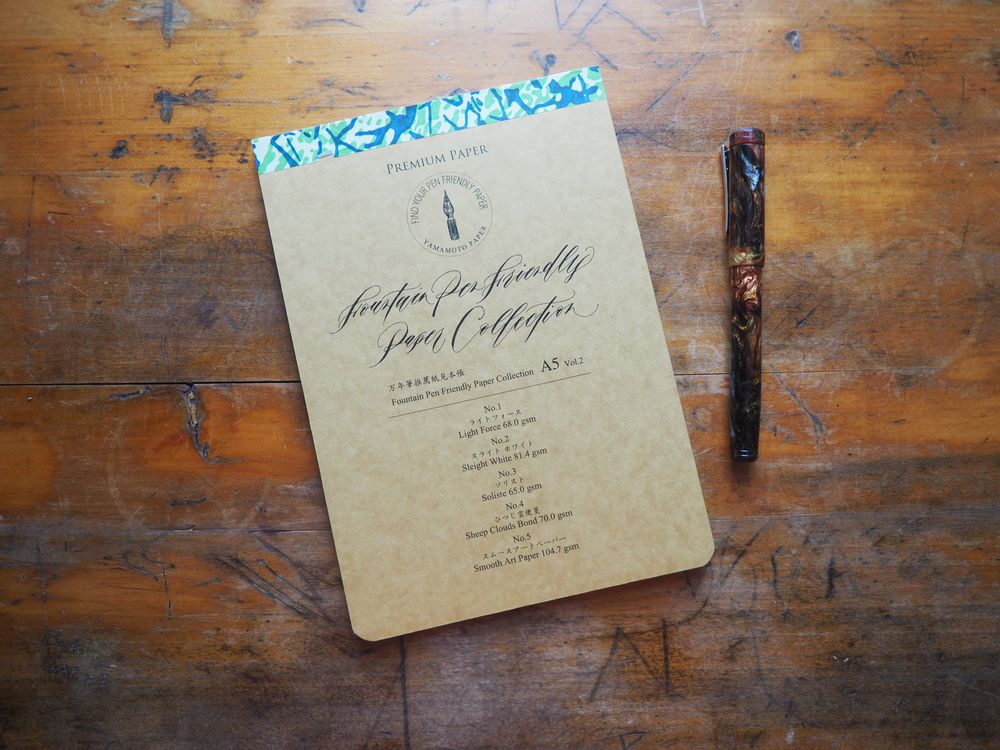 PREMIUM PAPER
FIND YOUR PEN FRIENDLY PAPER
YAMAMOTO PAPER
Fountain Pen Friendly
Paper Collection
万年筆推薦紙見本帳
Fountain Pen Friendly Paper Collection A5 Vol.2
No.1
ライトフォース
Light Force 68.0 gsm
No.2
スライト ホワイト
Sleight White 81.4 gsm
No.3
ソリスト
Soliste 65.0 gsm
No.4
ひつじ雲便箋
Sheep Clouds Bond 70.0 gsm
No.5
スムースアートペーパー
Smooth Art Paper 104.7 gsm